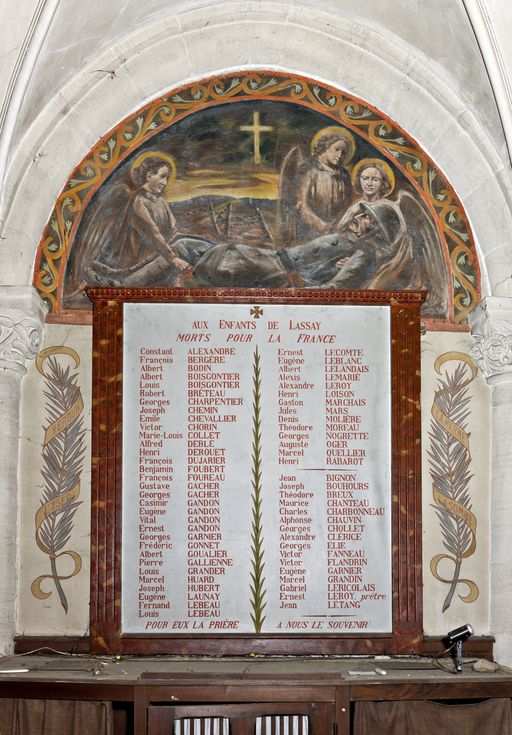 AUX ENFANTS DE LASSAY
MORTS POUR LA FRANCE
Constant ALEXANDRE
François BERGÈRE
Albert BODIN
Albert BOISGONTIER
Louis BOISGONTIER
Robert BRÉTEAU
Georges CHARPENTIER
Joseph CHEMIN
Emile CHEVALLIER
Victor CHORIN
Marie-Louis COLLET
Alfred DEBLÉ
Henri DEROUET
François DUJARIER
Benjamin FOUBERT
François FOUREAU
Gustave GACHER
Georges GACHER
Casimir GANDON
Eugène GANDON
Vital GANDON
Ernest GANDON
Georges GARNIER
Frédéric GONNET
Albert GOUALIER
Pierre GALLIENNE
Louis GRANDER
Marcel HUARD
Joseph HUBERT
Eugène LAUNAY
Fernand LEBEAU
Louis LEBEAU
Ernest LECOMTE
Eugène LEGEARD
Albert LELANDAIS
Alexis LEMARIÉ
Alexandre LEROY
Henri LOISON
Gaston MARCHAIS
Jules MARS
Denis MOLIÈRE
Théodore MOREAU
Georges NOGRETTE
Auguste OGER
Marcel QUELLIER
Henri RABAROT
Jean BIGNON
Joseph BOUHOURS
Théodore BREUX
Maurice CHANTEAU
Charles CHARBONNEAU
Alphonse CHAUVIN
Georges CHOLLET
Alexandre CLÉRICE
Georges ELIE
Victor FANNEAU
Victor FLANDRIN
Eugène GARNIER
Marcel GRANDIN
Gabriel LERICOLAIS
Ernest LEROY, prêtre
Jean LÉTANG
POUR EUX LA PRIÈRE
A NOUS LE SOUVENIR